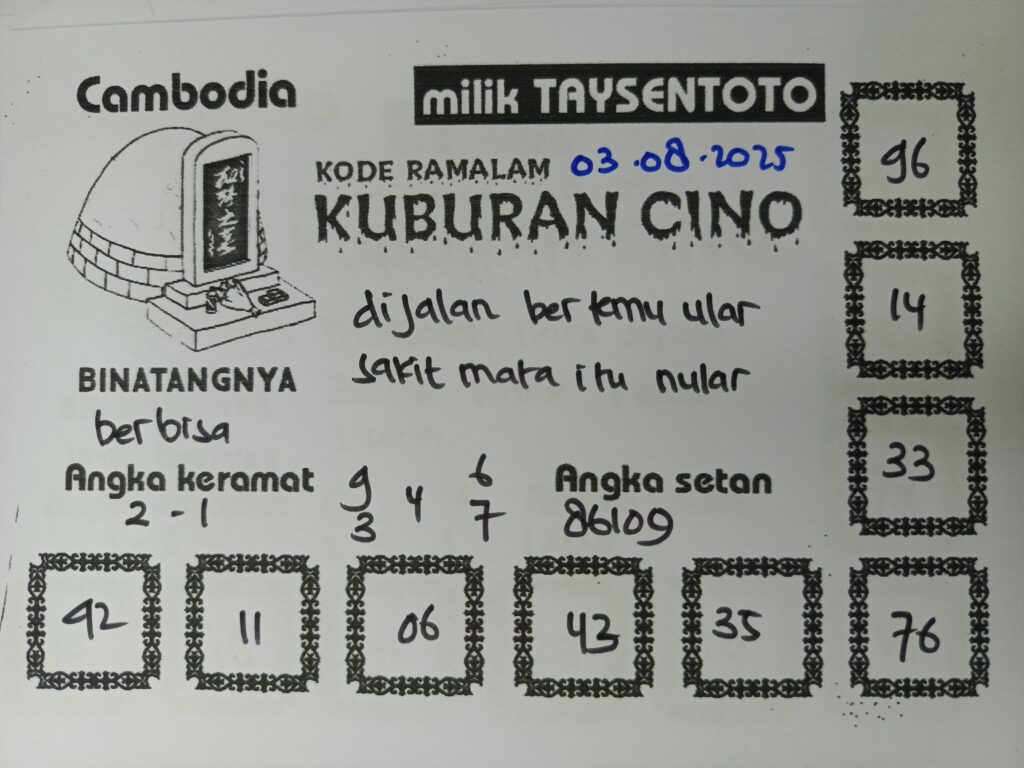 Cambodia
milik TAYSENTOTO
KODE RAMALAM 03.08.2025
KUBURAN CINO
dijalan bertemu ular
sakit mata itu nular
BINATANGNYA
berbisa
Angka keramat
2 - 1
9 4 6
3 7
Angka setan
86109
96
14
33
92
11
06
43
35
76